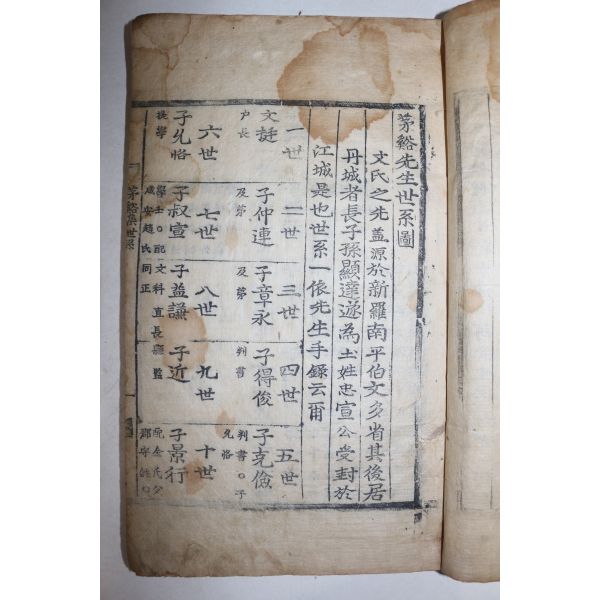 茅谿先生世系圖
文氏之先盖源於新羅南平伯文多省其後居
丹城者長子孫顯達遂為土姓忠宣公受封於
江城是也世系一依先生手錄云爾
一世
二世
三世
四世
五世
文
子仲連
子章永
子得俊
子克儉
户長
及第
及第
判書
判書○子
允恪
六世
七世
八世
九世
十世
子允恪
子叔宣
子益謙
子近
子景行
提學
學士○配
咸安趙氏
文科直長
同正
縣監
茅谿集世系
一